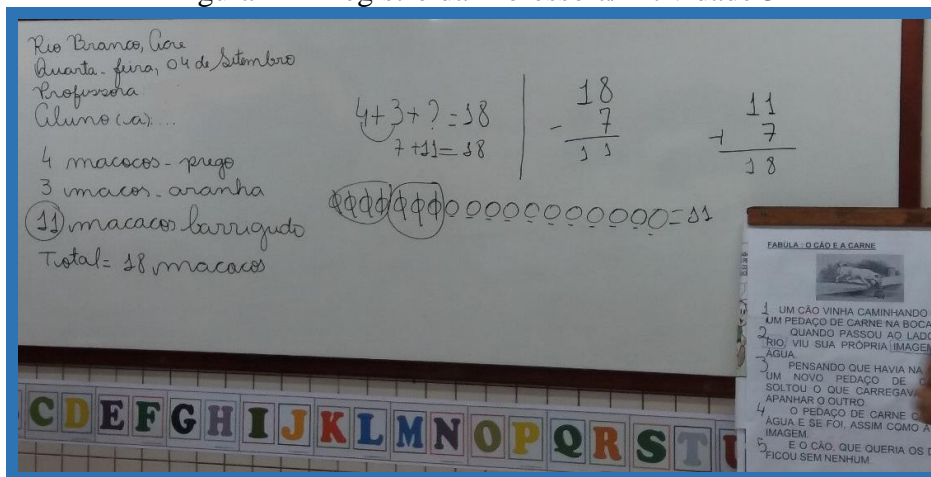 Rio Branco, Acre
Quarta-feira, 04 de Setembro
Professora
Aluno (a)....
4 macacos-prego
3 macos-aranha
11 macacos barrigudo
Total= 18 macacos
4+3+?=18
7+11=18
18
- 7
11
11
+ 7
18
=11
FÁBULA : O CÃO E A CARNE
1 UM CÃO VINHA CAMINHANDO
UM PEDAÇO DE CARNE NA BOCA
2 QUANDO PASSOU AO LADO
RIO, VIU SUA PRÓPRIA IMAGEM
ÁGUA.
3 PENSANDO QUE HAVIA NA
UM NOVO PEDAÇO DE
SOLTOU O QUE CARREGAVA
APANHAR O OUTRO
4 O PEDAÇO DE CARNE
ÁGUA E SE FOI, ASSIM COMO A
IMAGEM.
5 E O CÃO, QUE QUERIA OS
FICOU SEM NENHUM.
C D E F G H I J K L M N O P Q R S T U